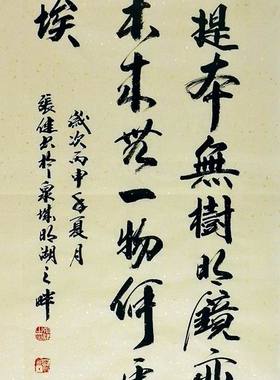 提本無樹明鏡亦
本来無一物何處
埃
歲次丙申年夏月
張健書於泉城明湖之畔